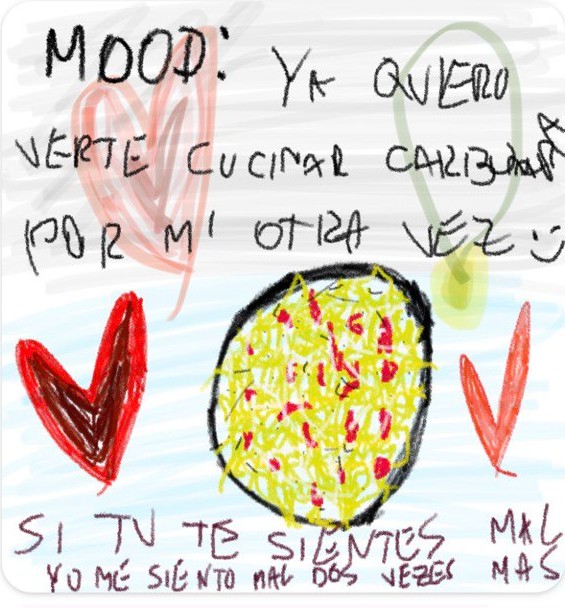 MOOD: YA QUIERO
VERTE CUCINAR CARBONARA
POR MI OTRA VEZ :)
SI TU TE SIENTES MAL
YO ME SIENTO MAL DOS VEZES MAS